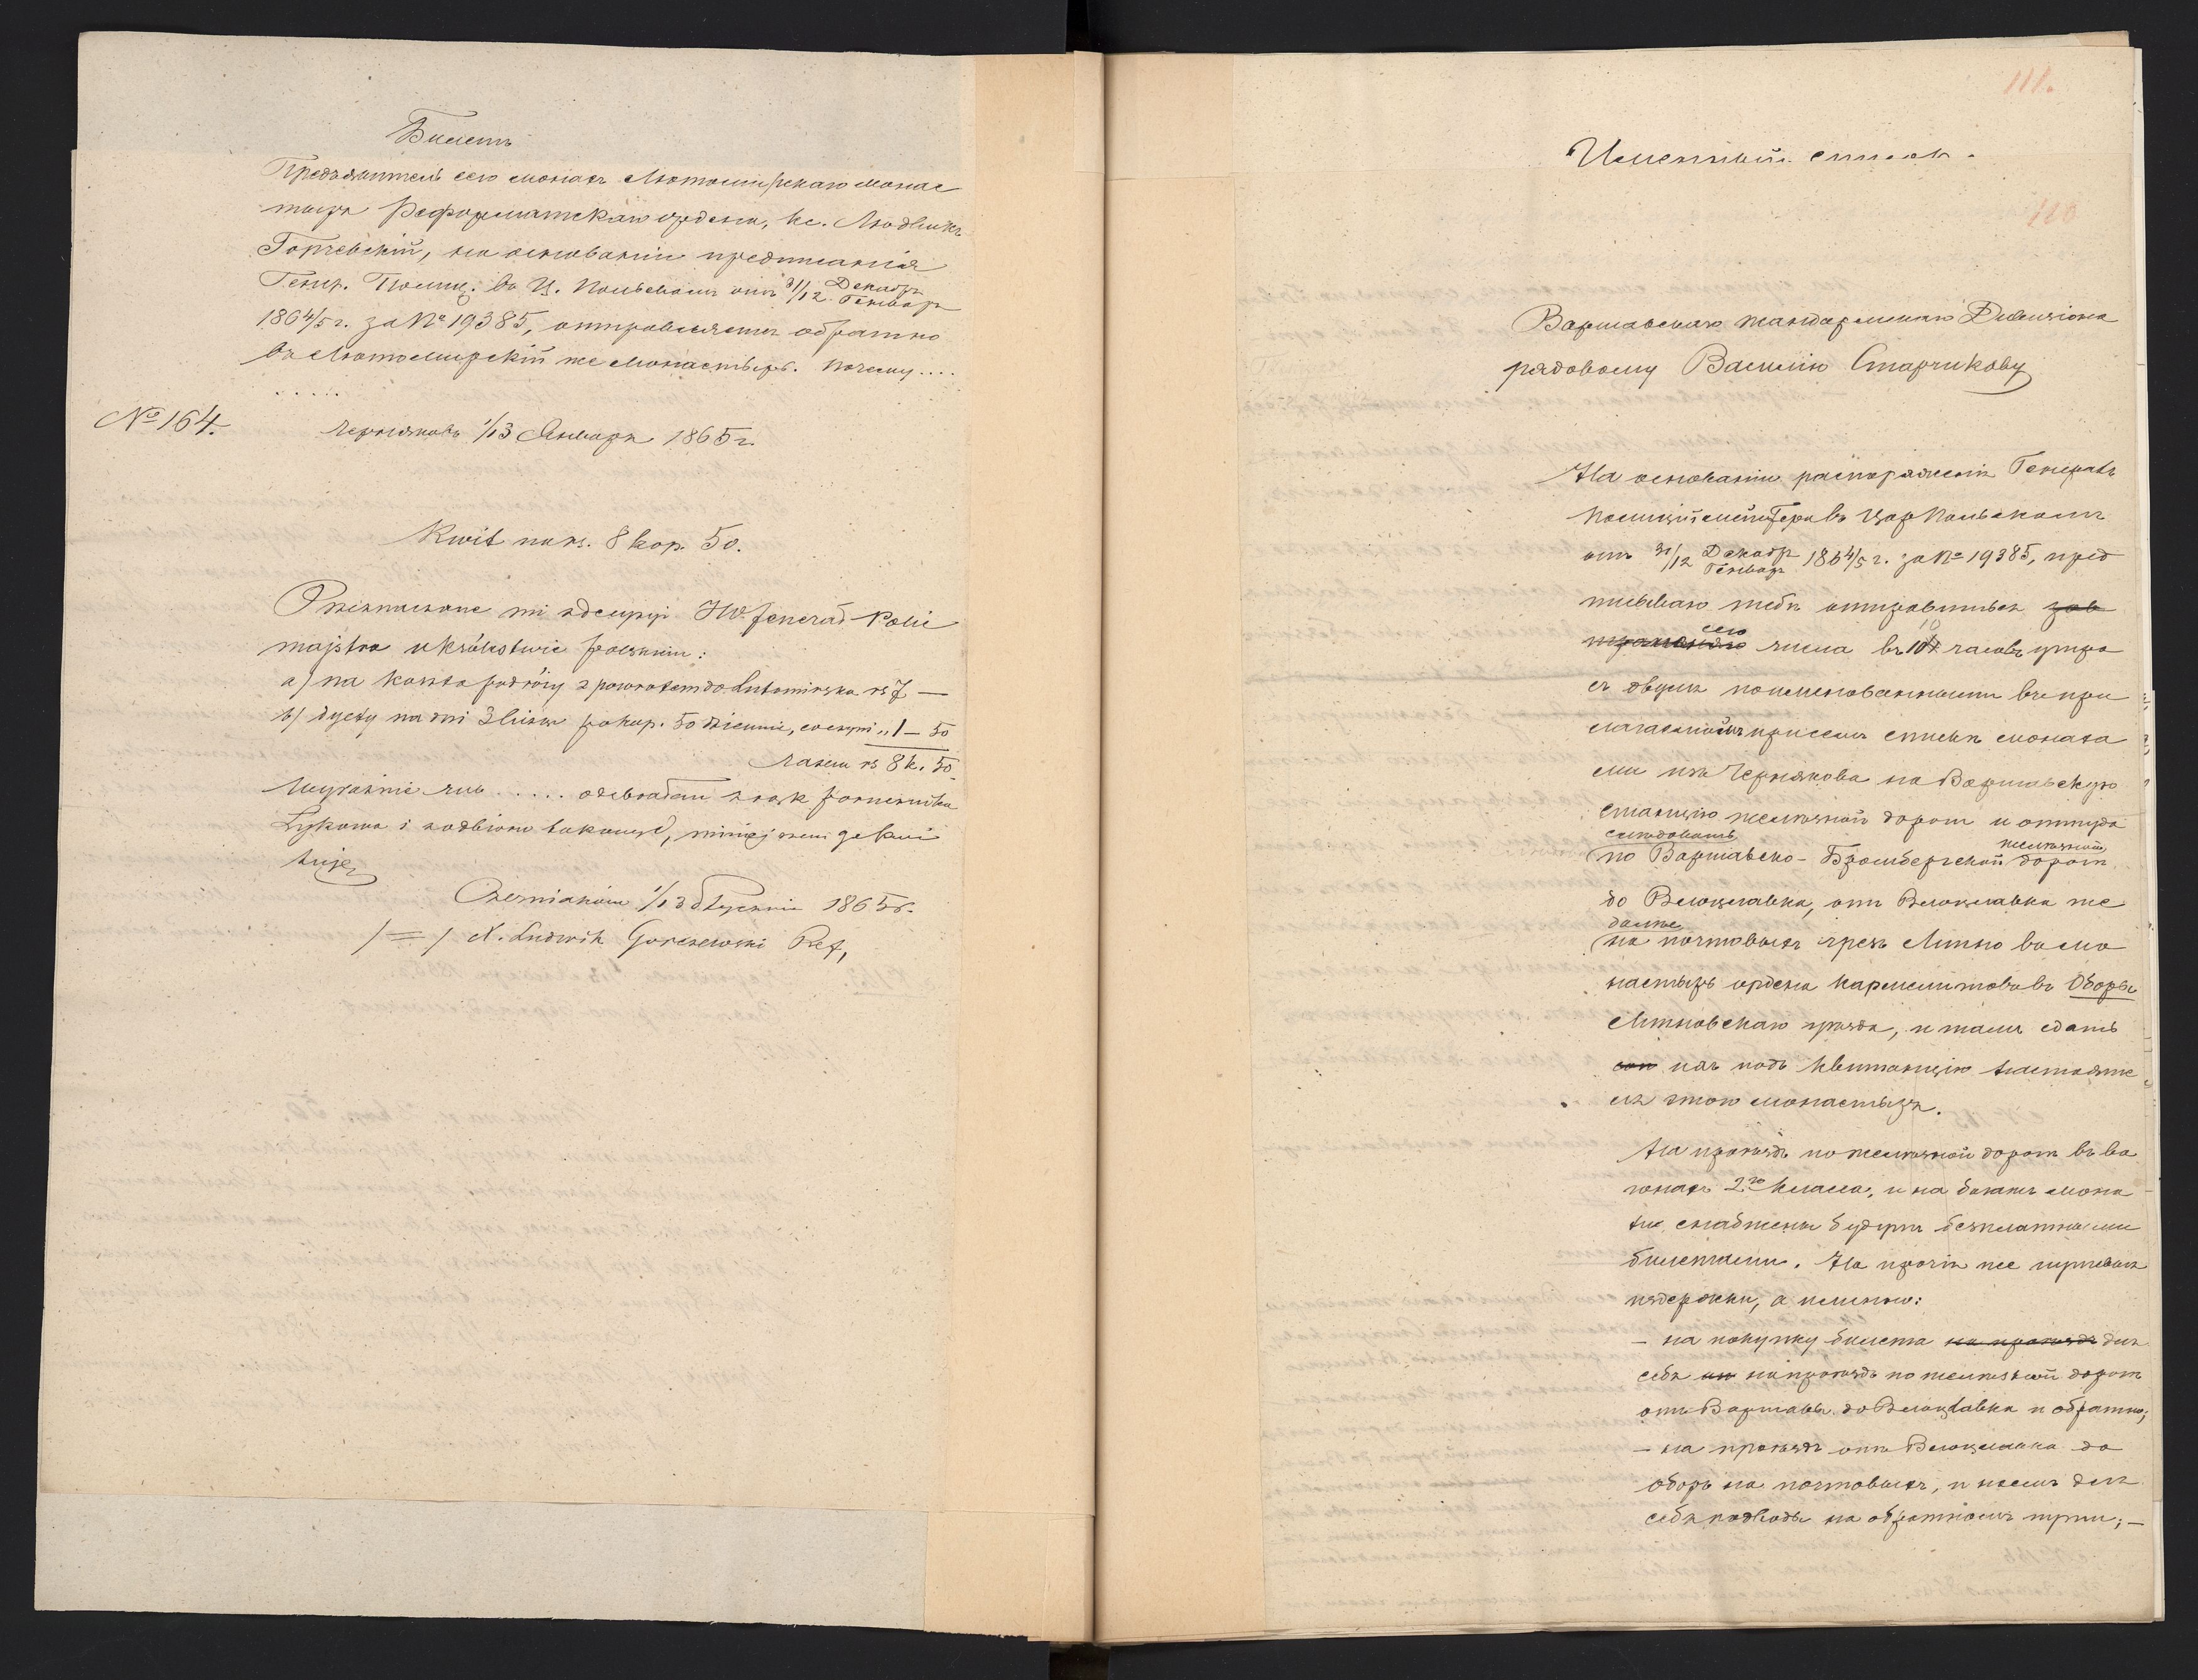 Билетъ
Предъявитель сего монахъ Лютомирскаго монас
тыря Реформатскаго ордена, кс. Людвикъ
Горчевскій, на основаніи предписанія
Генер. Полиц. въ Ц. Польскомъ отъ 31/12 Декабр Генваря
1864/5 г. за № 19385, отправляетъ обратно
въ Лютомирскій же монастырь. Почему....
.....
№ 164.
Черняковъ 1/13 Января 1865 г.
Kwit na rs. 8 kop. 50.
Przeznaczone mi z decyzyi JW. Jenerał Polic
majstra w Królestwie Polskiem:
a) na koszta podróży z powrotem do Lutomirska rs 7 —
b) dyety na dni 3 licząc po kop. 50 dziennie, co czyni „ 1 – 50
Razem rs 8 k. 50
Wyraźnie rub ..... odebrałem z rąk porucznika
Łykowa i z odbioru takowych, niniejszem go kwi
tuję
Czerniaków 1/13 Stycznia 1865 r.
/=/ X. Ludwik Gorczewski Ref,
111.
Именный списокъ.
110
Варшавскаго Жандармскаго Дивизіона
рядовому Василію Старчикову
На основаніи распоряженія Генералъ
Полиціймейстера въ Цар Польскомъ
отъ 31/12 Декабр Генвар 1864/5 г. за № 19385, пред
писываю тебѣ отправиться зав
сего
числа въ 10 часовъ утра
съ двумя поименованными въ при
лагаемомъ при семъ списки монаха
ми изъ Чернякова на Варшавскую
станцію желѣзной дороги и оттуда
слѣдовать желѣзной
по Варшавско-Бромбергской дорогѣ
до Влоцлавка, отъ Влоцлавка же
далѣе
на почтовыхъ чрезъ Липно въ мо
настырь ордена Кармелитовъ въ Оборы
Липновскаго уѣзда, и тамъ сдать
ихъ подъ квитанцію настояте
ля этого монастыря.
На проѣздъ по желѣзной дорогѣ въ ва
гонахъ 2го класса, и на багажъ мона
хи снабжены будутъ безплатными
билетами. На прочія же путевыя
издержки, а именно:
– на покупку билета на проѣздъ для
себя на проѣздъ по желѣзной дорогѣ
отъ Варшавы до Влоцлавка и обратно;
– на проѣздъ отъ Влоцлавка до
Оборъ на почтовыхъ, и наемъ для
себя подводы на обратномъ пути; –